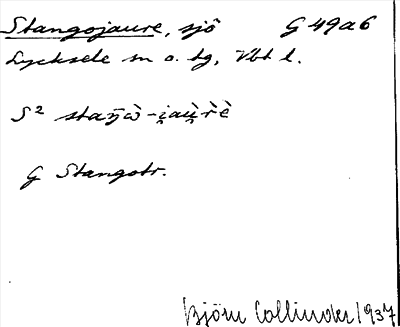 Stangojaure, sjö G 49a6
Lycksele sn o. tg, Vbt l.
S² staŋ̄ὼ-i̯aù̯r̀ὲ
G Stangotr.
Björn Collinder 1937